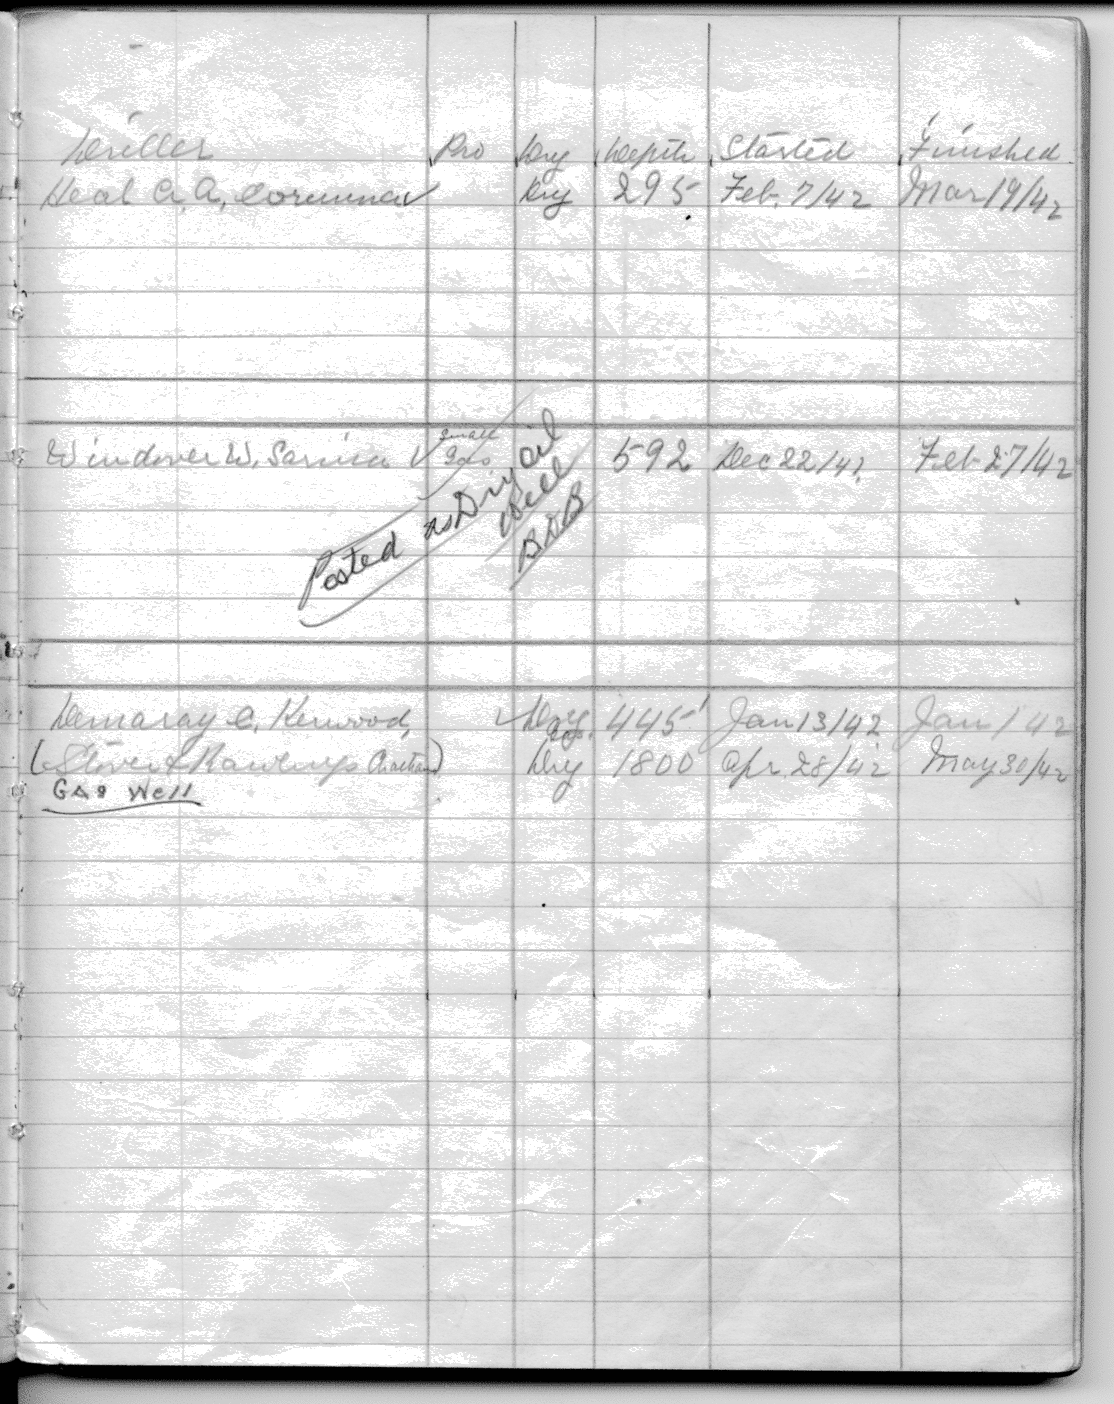 Driller Pro Dry Depth Started Finished
Heal C. A. Corunna ✓ Dry 295 Feb. 7/42 Mar 19/42
Windover W. Sarnia ✓ Small Gas 592 Dec 22/41 Feb 27/42
Posted as Dry oil
Well
B & B
Demaray C. Kerwood, ✓ Dry 445' Jan 13/42 Jan 42
(Stover & Rawlings Chatham) Dry 1800 Apr 28/42 May 30/42
GAS Well